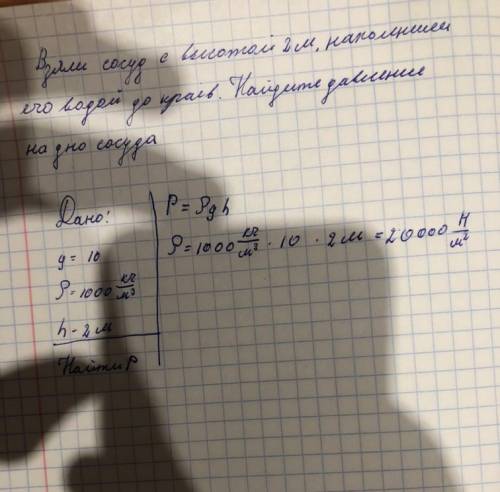 Взяли сосуд с высотой 2м, наполнили
его водой до краёв. Найдите давление
на дно сосуда
Дано:
g = 10
ρ = 1000 кг/м³
h - 2 м
Найти P
P = ρgh
ρ = 1000 кг/м³ · 10 · 2 м = 20000 Н/м²